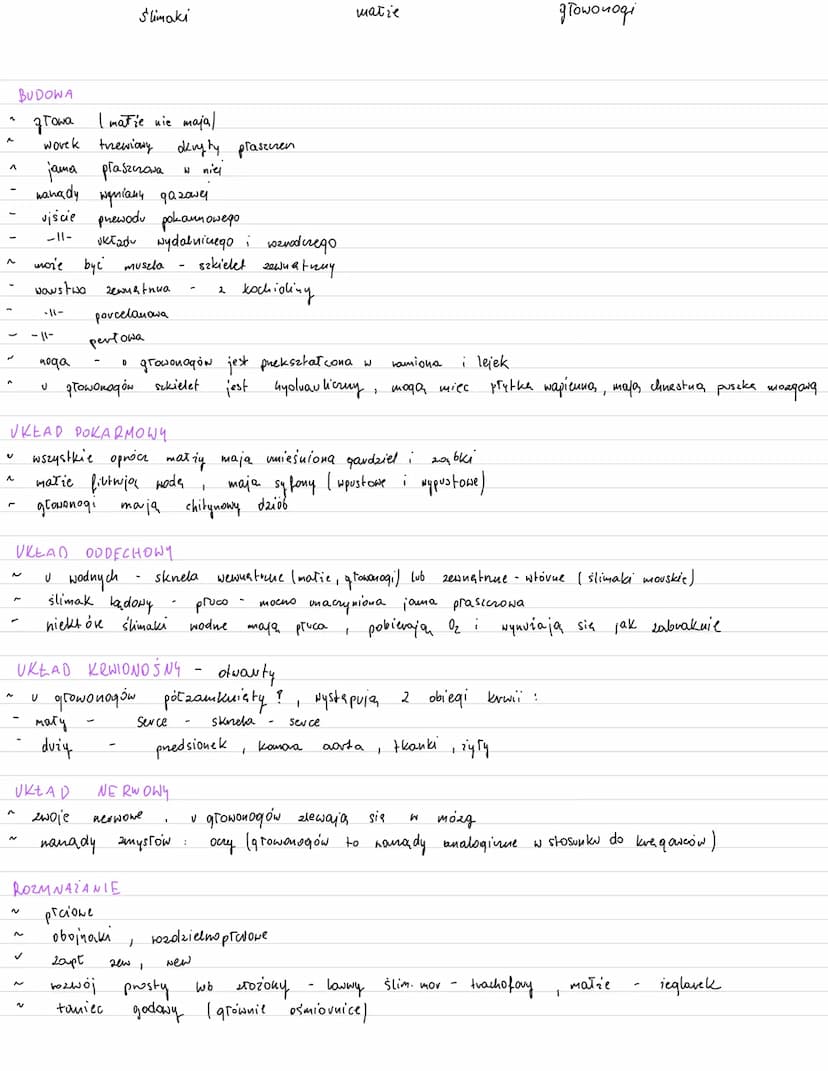 ślimaki małże głowonogi
BUDOWA
~ głowa (małże nie mają)
~ worek trzewiowy okryty płaszczem
~ jama płaszczowa w niej
- narządy wymiany gazowej
- ujście przewodu pokarmowego
- -||- układu wydalniczego i rozrodczego
~ może być muszla - szkielet zewnętrzny
- warstwa zewnętrzna - z kochioliny
- -||- porcelanowa
- -||- perłowa
~ noga - u głowonogów jest przekształcona w ramiona i lejek
~ u głowonogów szkielet jest hydrauliczny, mogą mieć płytkę wapienną, mają chrzęstną puszkę mózgową
UKŁAD POKARMOWY
~ wszystkie oprócz małży mają umięśnioną gardziel i ząbki
~ małże filtrują wodę, mają syfony (wpustowe i wypustowe)
~ głowonogi mają chitynowy dziób
UKŁAD ODDECHOWY
~ u wodnych - skrzela wewnętrzne (małże, głowonogi) lub zewnętrzne - wtórne (ślimaki morskie)
~ ślimak lądowy - płuco - mocno unaczyniona jama płaszczowa
~ niektóre ślimaki wodne mają płuca, pobierają O2 i wynurzają się jak zabraknie
UKŁAD KRWIONOŚNY - otwarty
~ u głowonogów półzamknięty?, występują 2 obiegi krwii:
- mały - serce - skrzela - serce
- duży - przedsionek, komora aorta, tkanki, żyły
UKŁAD NERWOWY
~ zwoje nerwowe, u głowonogów zlewają się w mózg
~ narządy zmysłów: oczy (głowonogów to narządy analogiczne w stosunku do kręgowców)
ROZMNAŻANIE
~ płciowe
~ obojnaki, rozdzielnopłciowe
~ zapł zew, wew
~ rozwój prosty lub złożony - larwy ślim. mor - trochofory, małże - żeglarek
~ taniec godowy (głównie ośmiornice)